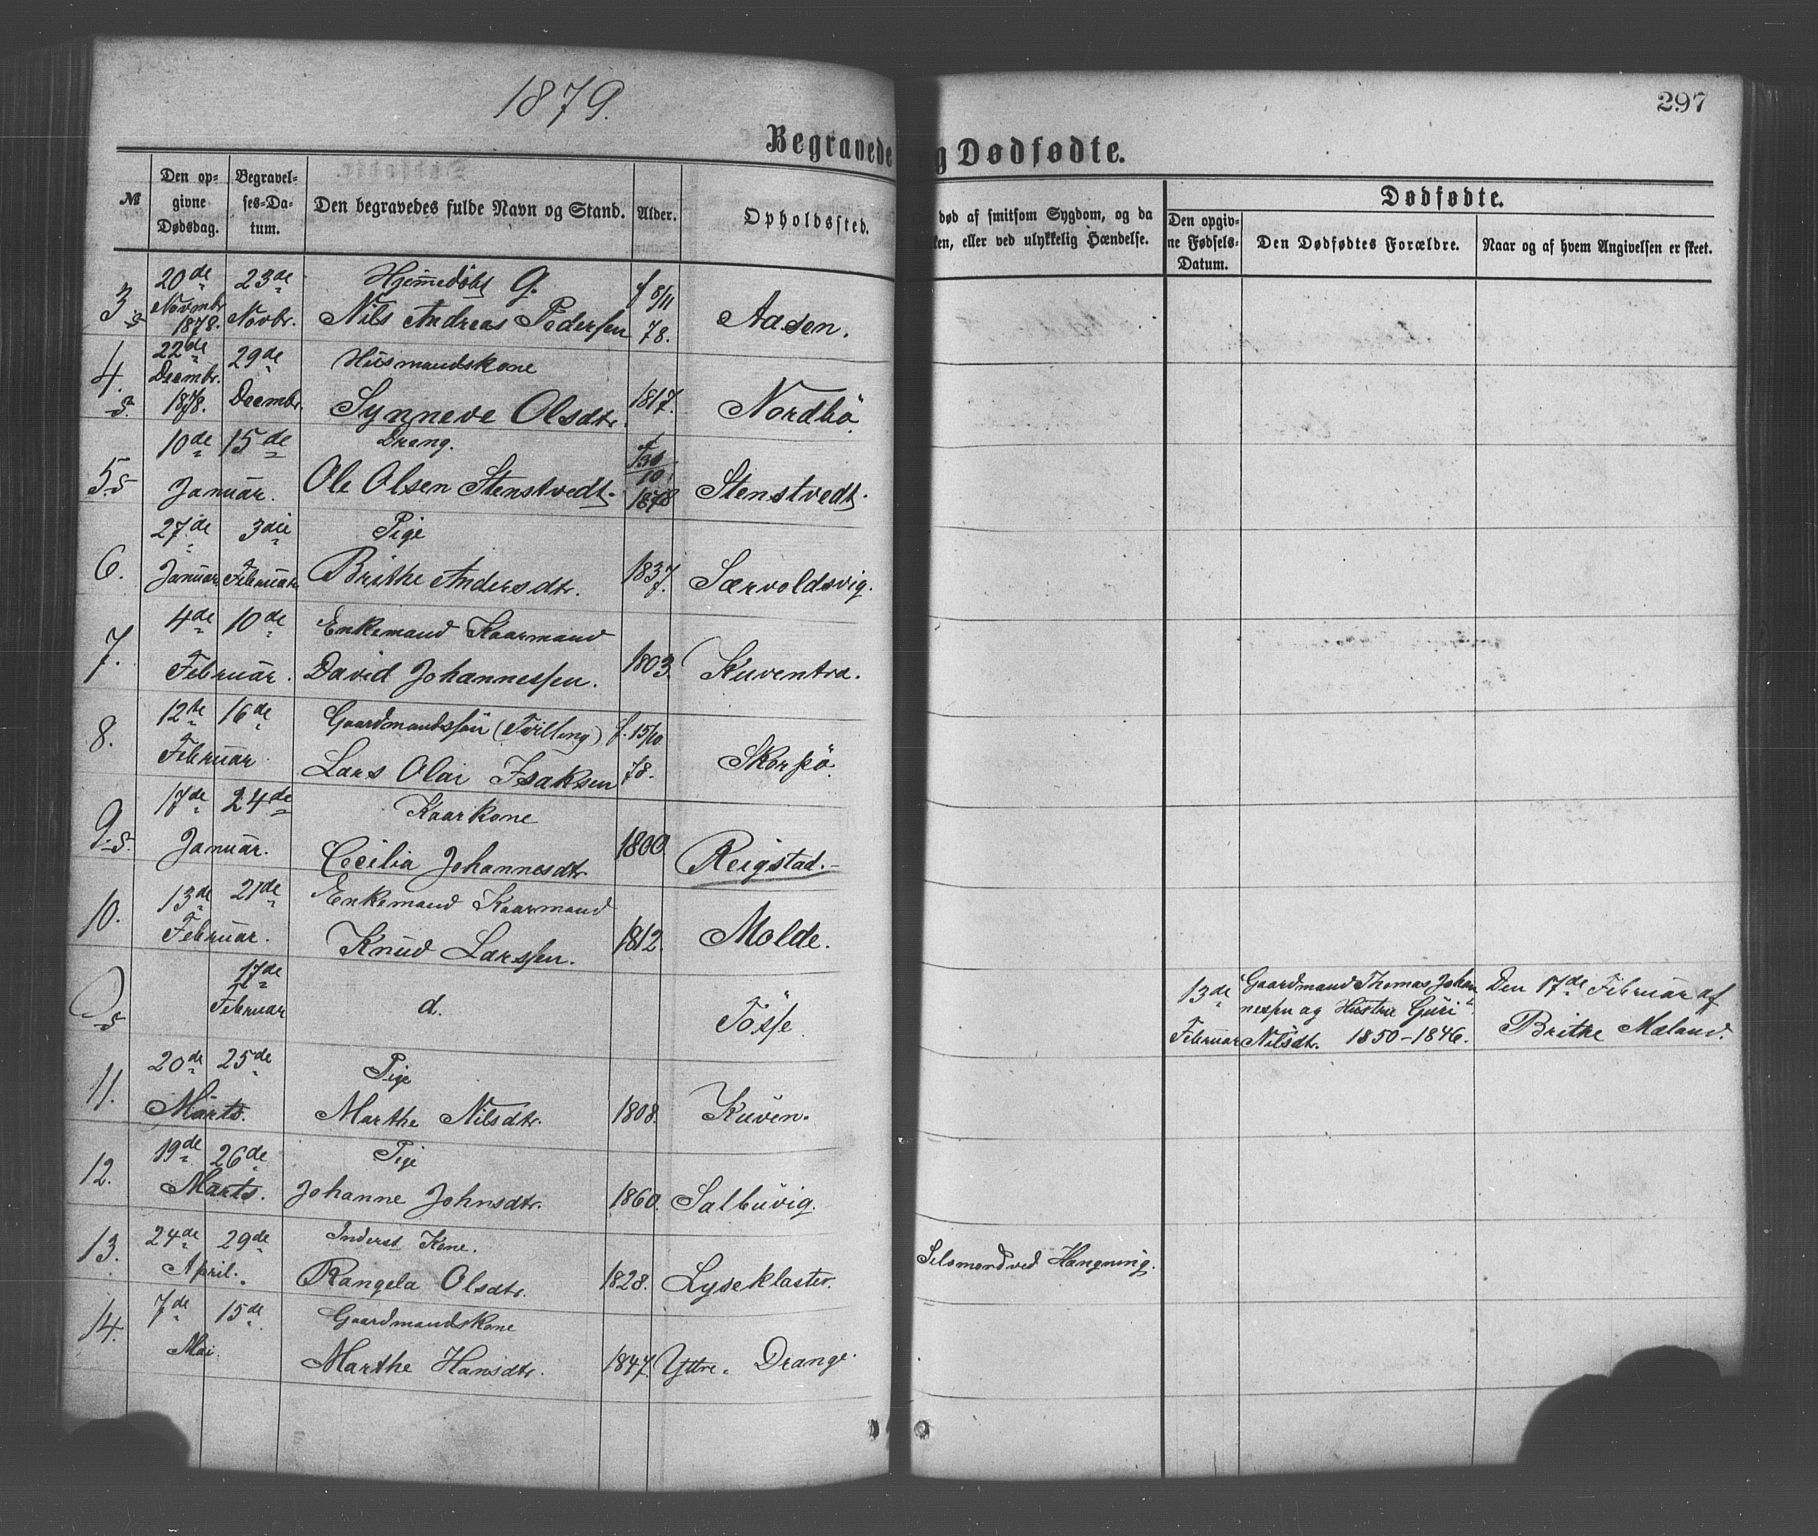 1879.
297
Begravede
g Dødfødte.
№
Den op-
givne
Dødsdag.
Begravel-
ses-Da-
tum.
Den begravedes fulde Navn og Stand.
Alder.
Opholdssted.
død af smitsom Sygdom, og da
ken, eller ved ulykkelig Hændelse.
Dødfødte.
Den opgiv-
ne Fødsels-
Datum.
Den Dødfødtes Forældre.
Naar og af hvem Angivelsen er skeet.
20de 23de Hjemedøbt G. f 8/11
3 Novmbr Novbr. Nils Andreas Pedersen 78. Aasen.
s 1878.
22de 29de Husmandskone
4. Decmbr. Decmbr. Synneve Olsdtr. 1817. Nordbø
s. 1878.
10de 15de Dreng. f 30
5 s Januar. Ole Olsen Stenstvedt. 10 1878 Stenstvedt.
27.de 3die Pige
6. Januar Februar Brithe Andersdtr. 1837. Særvoldsvig.
4de 10de Enkemand Kaarmand
7. Februar. David Johannessen. 1803. Kuventræ.
12te 16de Gaardmandssøn (Tvilling) f. 15/10
8. Februar. Lars Olai Isaksen 78. Skorpø.
17de 24de Kaarkone
9 s. Januar. Cecilia Johannesdtr. 1800 Reigstad.
13de 21de Enkemand Kaarmand
10. Februar. Knud Larssen. 1812. Molde.
17de
D s Februar d. Tøsse.
13de Februar
Gaardmand Thomas Johan
nessen og Hustru Guri
Nilsdt. 1850-1846.
Den 17de Februar af
Brithe Mæland.
20de 25de Pige
11. Marts. Marthe Nilsdtr. 1808. Kuven.
19de 26de Pige
12. Marts. Johanne Johnsdtr. 1860. Salbuvig.
24de 29de Inderst Kone.
13. April. Rangela Olsdtr. 1828. Lyseklaster. Selsmord ved Hængning.
7de 15de Gaardmandskone
14. Mai. Marthe Hansdtr. 1847. Yttre. Drange.